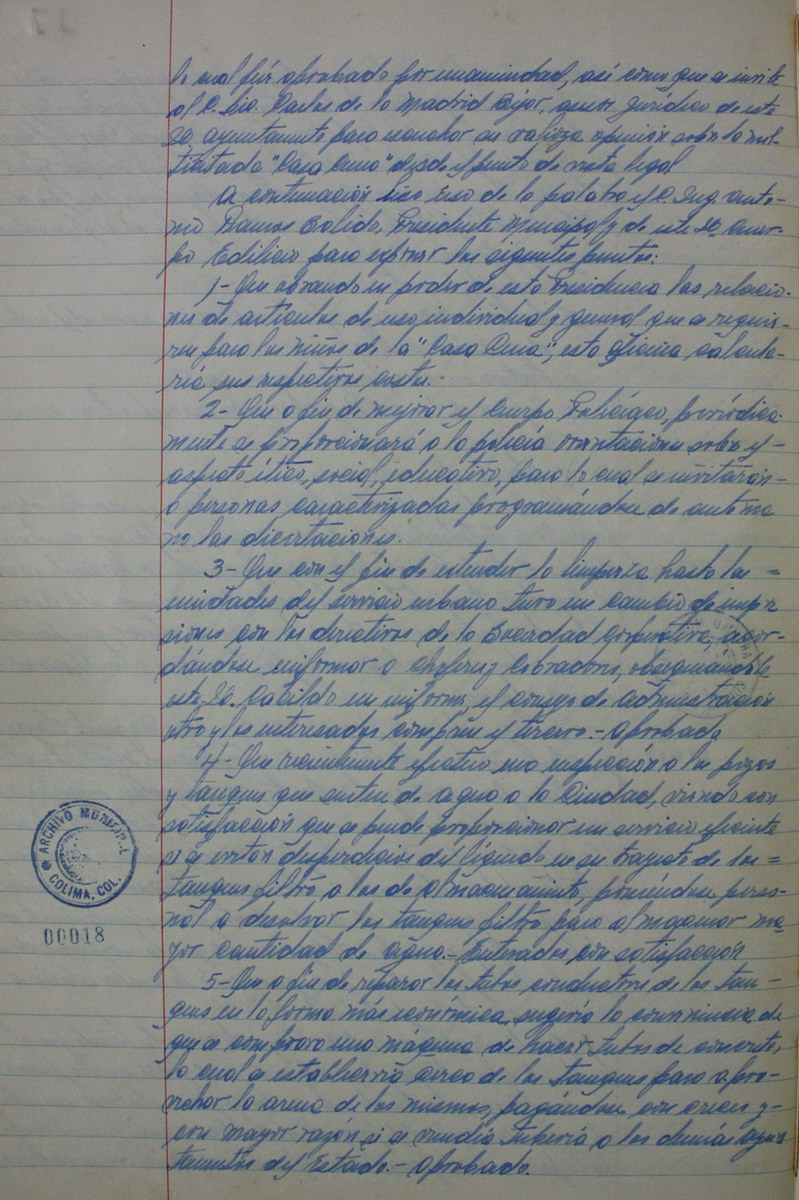 lo cual fué aprobado por unanimidad, así como que se invite
al C. Lic. Carlos de la Madrid Béjar, asesor jurídico de este
H. ayuntamiento para escuchar su valiosa opinión sobre la mul-
ticitada "Casa Cuna" desde el punto de vista legal
A continuación hizo uso de la palabra el C. Ing. Anto-
nio Ramos Salido, Presidente Municipal y de este H. Cuer-
po Edilicio para exponer los siguientes puntos:
1- Que obrando en poder de esta Presidencia las relacio-
nes de artículos de uso individual y general que se requie-
ren para los niños de la "Casa Cuna", esta oficina calcula-
ría sus respectivos costos.
2- Que a fin de mejorar el Cuerpo Policíaco, periódica-
mente se proporcionará a la policía orientaciones sobre el
aspecto ético, social, educativo, para lo cual se invitarán
a personas caracterizadas programándose de antema
no las disertaciones.
3- Que con el fin de extender la limpieza hasta las =
unidades del servicio urbano tuvo un cambio de impre
siones con los directivos de la Sociedad Cooperativa, acor-
dándose uniformar a choferes cobradores, obsequiándole
este H. Cabildo un uniforme, el consejo de administración
otro y los interesados compren el tercero.- Aprobado
4- Que recientemente efectuó una inspección a los pozos
y tanques que surten de agua a la Ciudad, viendo con
satisfacción que se puede proporcionar un servicio eficiente
si se evitan desperdicios del líquido en su trayecto de los =
tanques filtro a los de almacenamiento, poniéndose perso-
nal a desolvar los tanques filtro para almacenar ma
yor cantidad de agua.- Enterados con satisfacción
5- Que a fin de reparar los tubos conductores de los tan-
ques en la forma más económica, sugería la conveniencia de
que se comprara una máquina de hacer tubos de concreto,
la cual se establecería cerca de los tanques para apro-
vechar la arena de los mismos, pagándose con creces y-
con mayor razón si se vendía tubería a los demás ayun
tamientos del Estado.- Aprobado.
ARCHIVO MUNICIPAL
COLIMA, COL.
00018